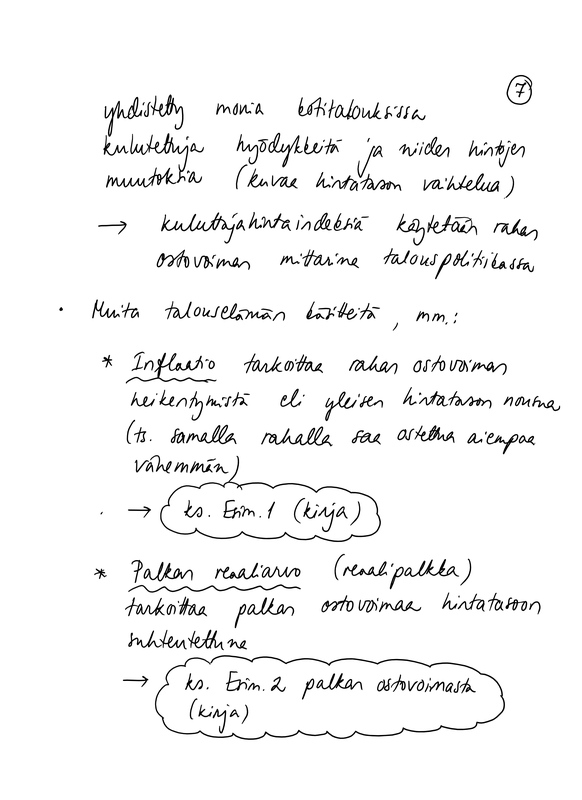 7
yhdistetty monia kotitalouksissa
kulutettuja hyödykkeitä ja niiden hintojen
muutoksia (kuvaa hintatason vaihtelua)
→ kuluttajahintaindeksiä käytetään rahan
ostovoiman mittarina talouspolitiikassa
• Muita talouselämän käsitteitä, mm.:
* Inflaatio tarkoittaa rahan ostovoiman
heikentymistä eli yleisen hintatason nousua
(ts. samalla rahalla saa ostettua aiempaa
vähemmän)
→ ks. Esim. 1 (kirja)
* Palkan reaaliarvo (reaalipalkka)
tarkoittaa palkan ostovoimaa hintatasoon
suhteutettuna
→ ks. Esim. 2 palkan ostovoimasta
(kirja)